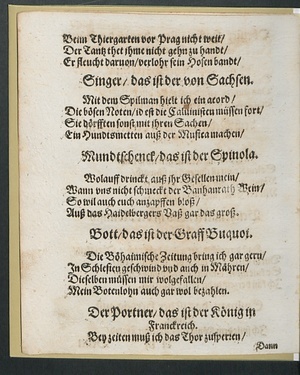 Beim Thiergarten vor Prag nicht weit/
Der Tantz thet ihme nicht gehn zu handt/
Er fleucht daruon/ verlohr sein Hosen bandt.
Singer/ das ist der von Sachsen.
Mit dem Spilman hielt ich ein acord/
Die bösen Noten/ id est die Calluinisten müssen fort/
Sie dörfften sonst mit ihren Sachen/
Ein Hundtsmetten auß der Musica machen/
Mundtschenck/ das ist der Spinola.
Wolauff drinckt auß ihr Gesellen mein/
Wann vns nicht schmeckt der Wein/
So wil auch euch anzapffen bloß/
Auß das Haidelbergers Vaß gar das groß.
Bott/ das ist der Graff Buquoi.
Die Böhaimische Zeitung bring ich gar gern/
In Schlesien geschwind vnd auch in Mähren/
Dieselben müssen mir wolgefallen/
Mein Botenlohn auch gar wol bezahlen.
Der Portner/ das ist der König in
Franckreich.
Bey zeiten muß ich das Thor zusperren/
Dann